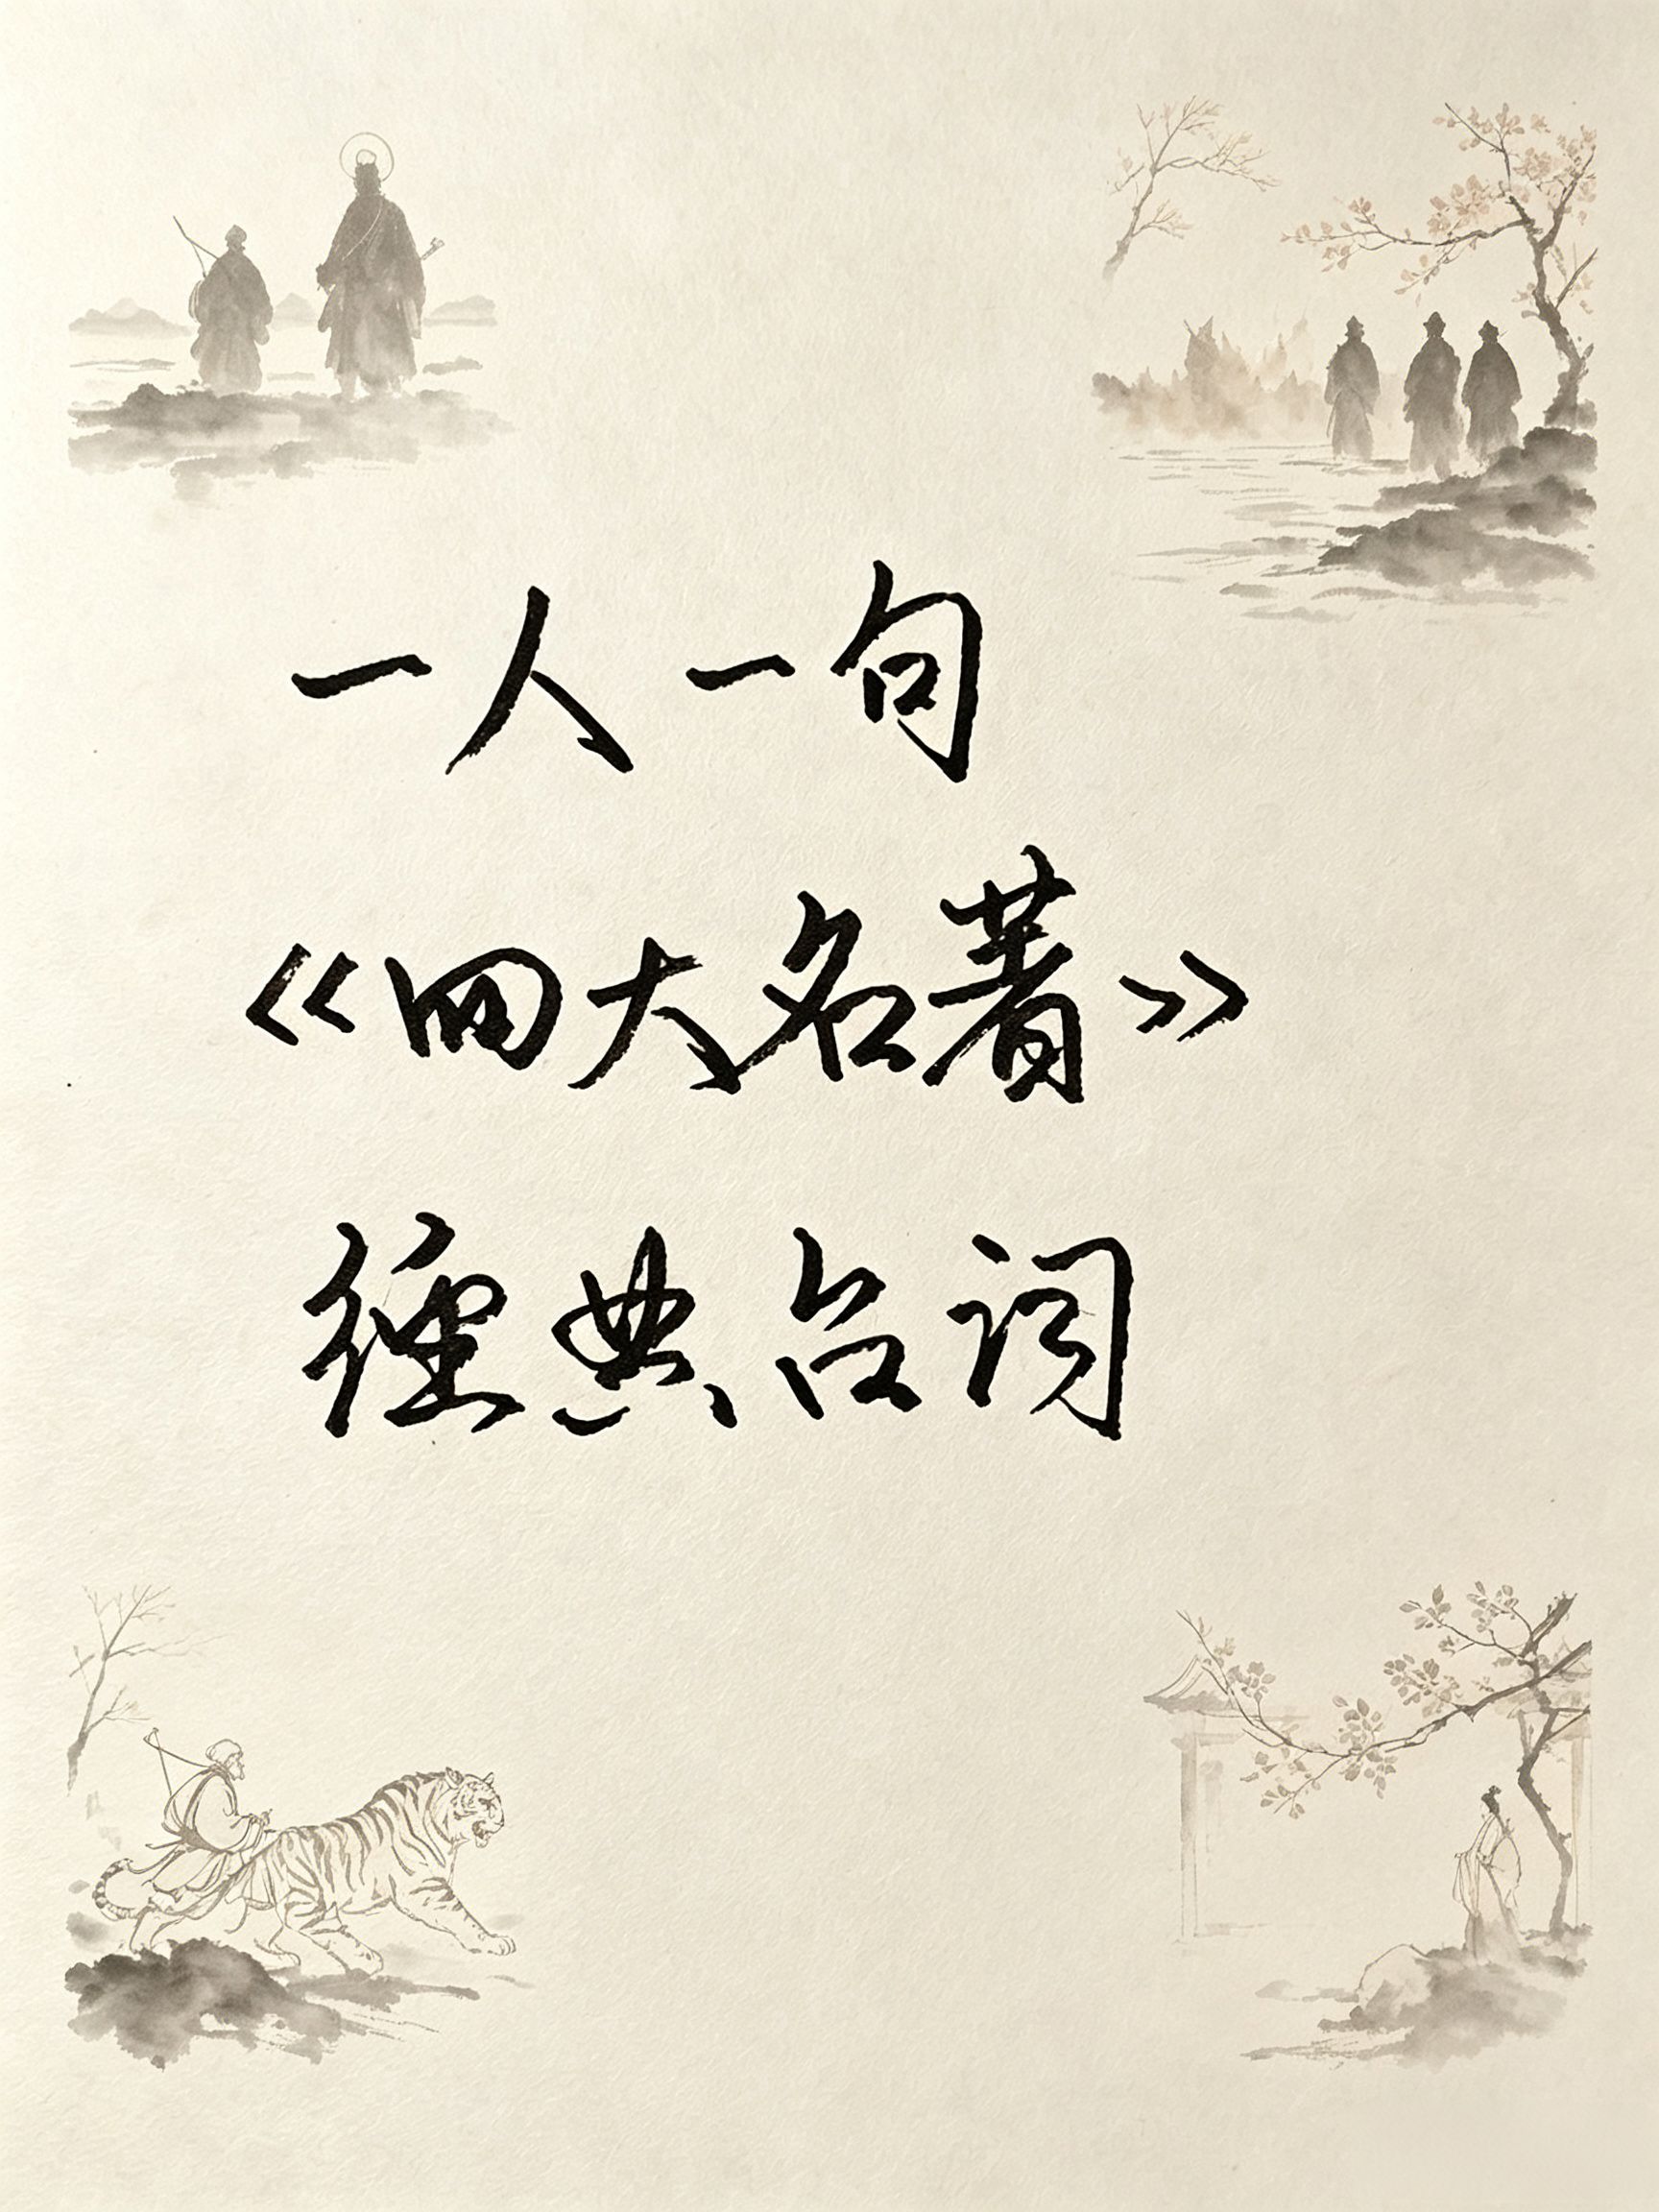 一人一句
《四大名著》
经典台词